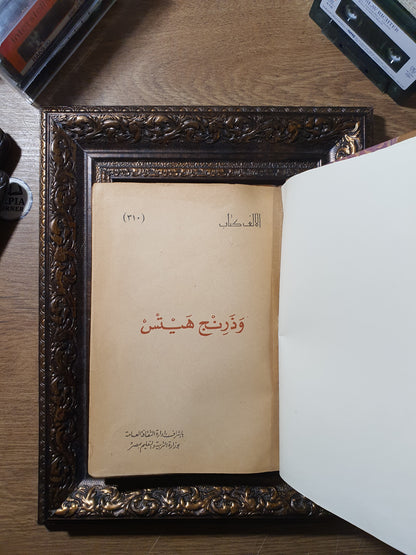 الألف كتاب
(٣١٠)
وَذَرِنْج هَيْتْسْ
باشراف إدارة الثقافة العامة
بوزارة التربية والتعليم بمصر